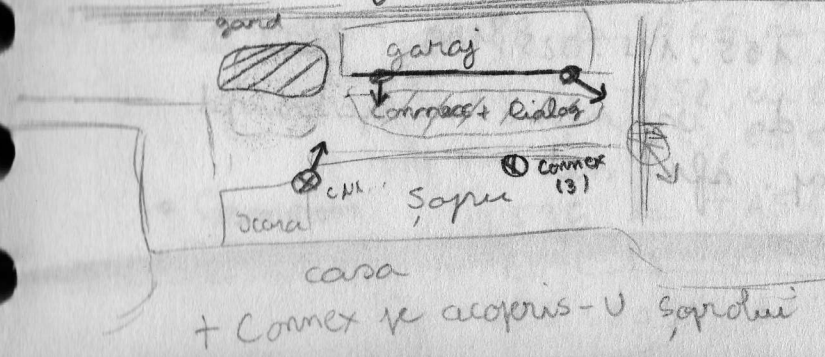 gard
garaj
Connex + Dialog
Connex
(3)
Șopru
scara
casa
+ Connex pe acoperis-u șoprolui